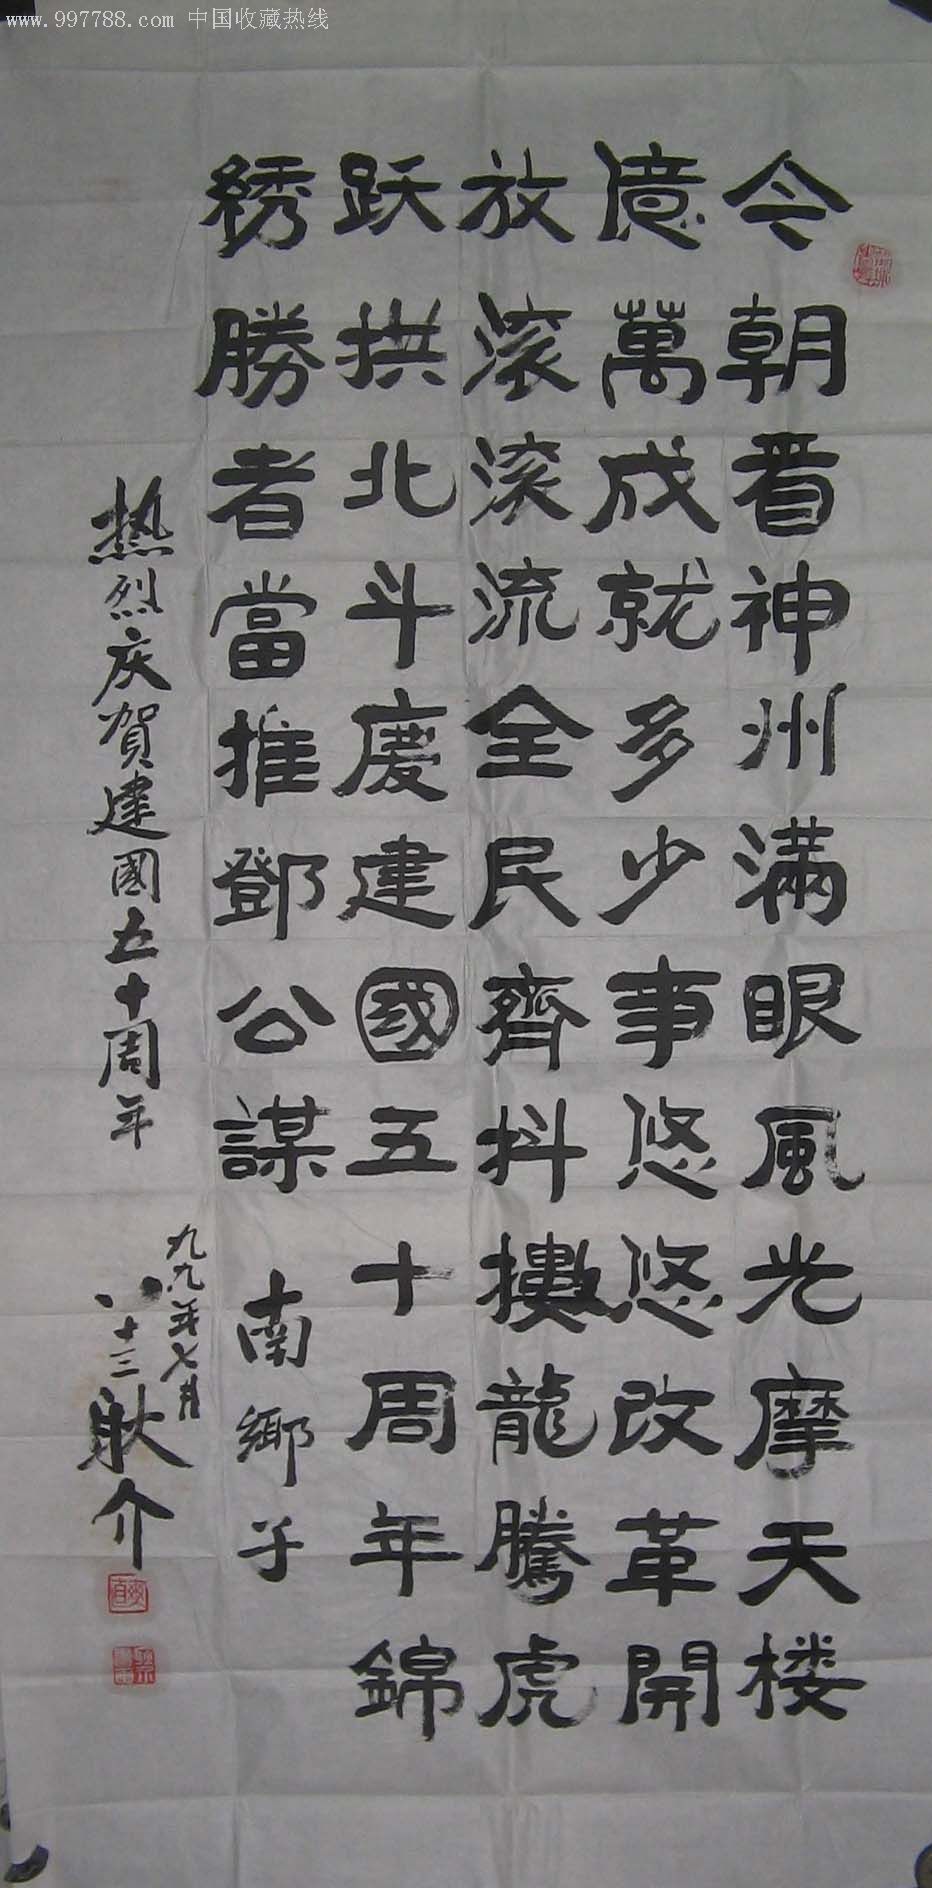 www.997788.com 中国收藏热线
今朝看神州满眼風光摩天楼
億萬成就多少事悠悠改革開
放滚滚流全民齊抖擻龍騰虎
跃拱北斗慶建國五十周年錦
綉勝者當推鄧公謀 南鄉子
热烈庆賀建國五十周年
九九年七月
八十三耿介